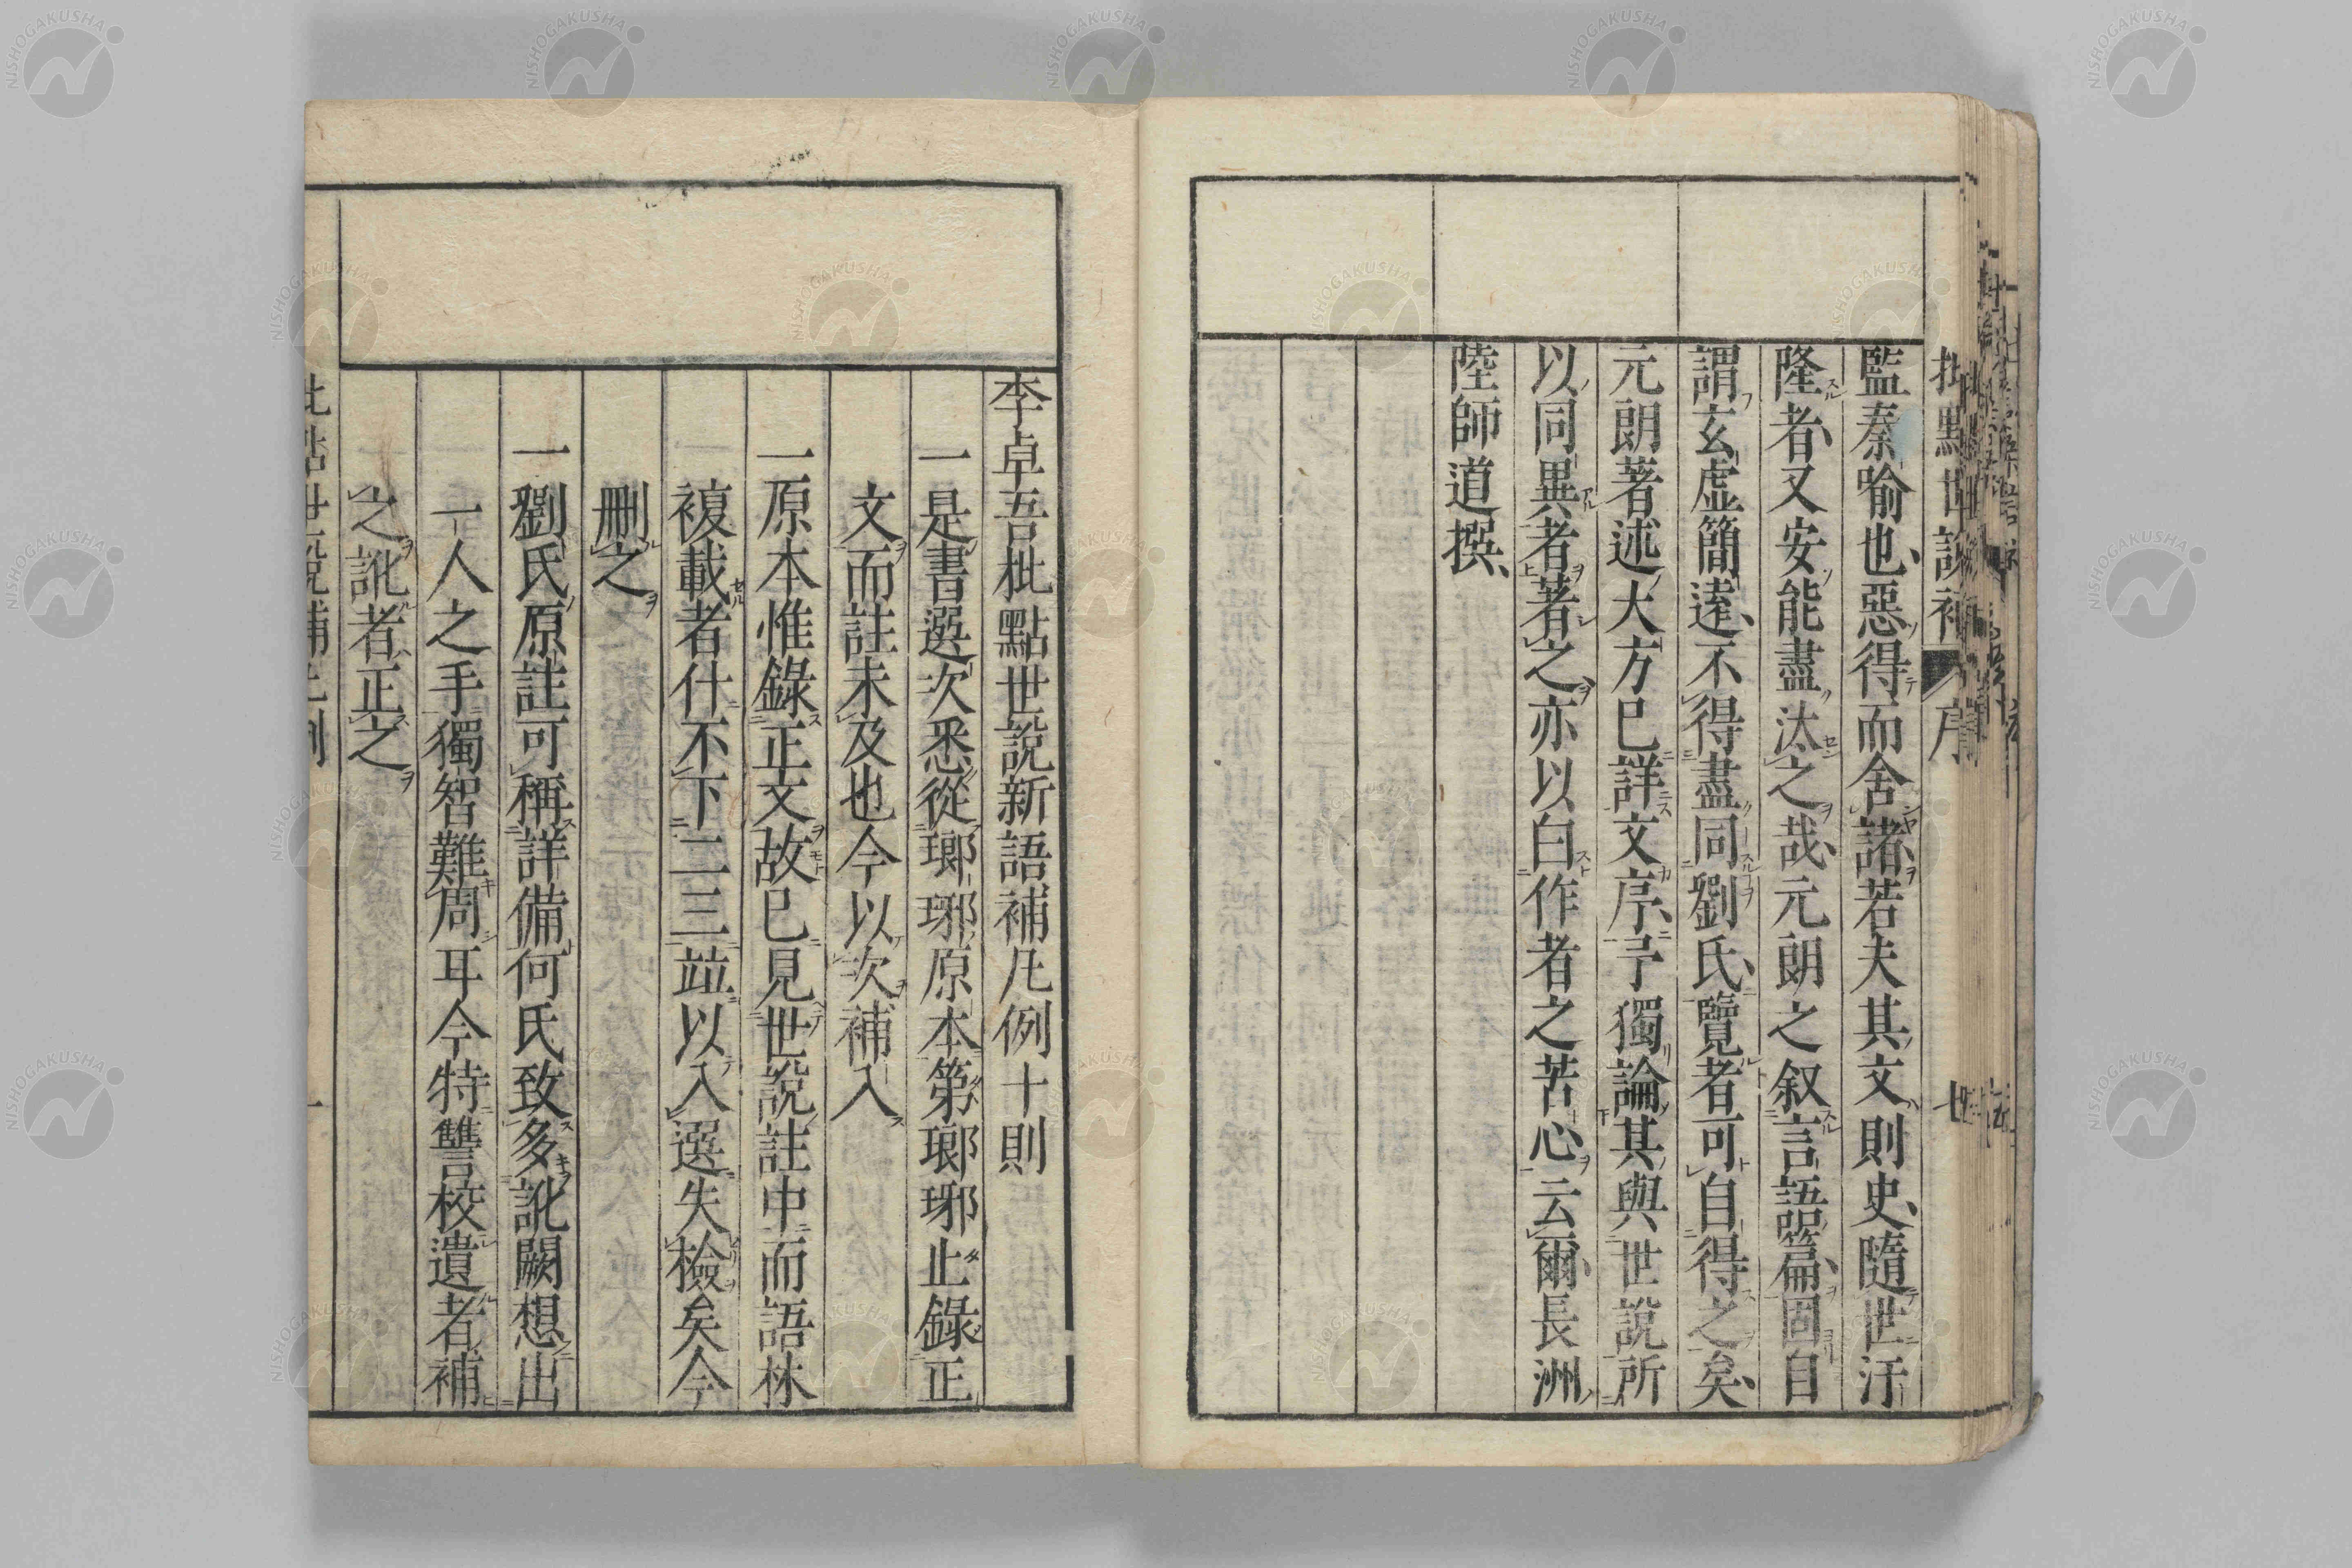 監秦喻也惡得而舍諸若夫其文則史隨世汙
隆者又安能盡汰之哉元朗之叙言語篇固自
謂玄虛簡遠不得盡同劉氏覽者可自得之矣
元朗著述大方已詳文序予獨論其與世說所
以同異者著之亦以白作者之苦心云爾長洲
陸師道撰
李卓吾枇點世說新語補凡例十則
一是書選次悉從瑯琊原本第瑯琊止錄正
文而註未及也今以次補入
一原本惟錄正文故已見世說註中而語林
複載者什不下二三竝以入選失檢矣今
刪之
一劉氏原註可稱詳備何氏致多訛闕想出
一人之手獨智難周耳今特讐校遺者補
之訛者正之
NISHOGAKUSHA